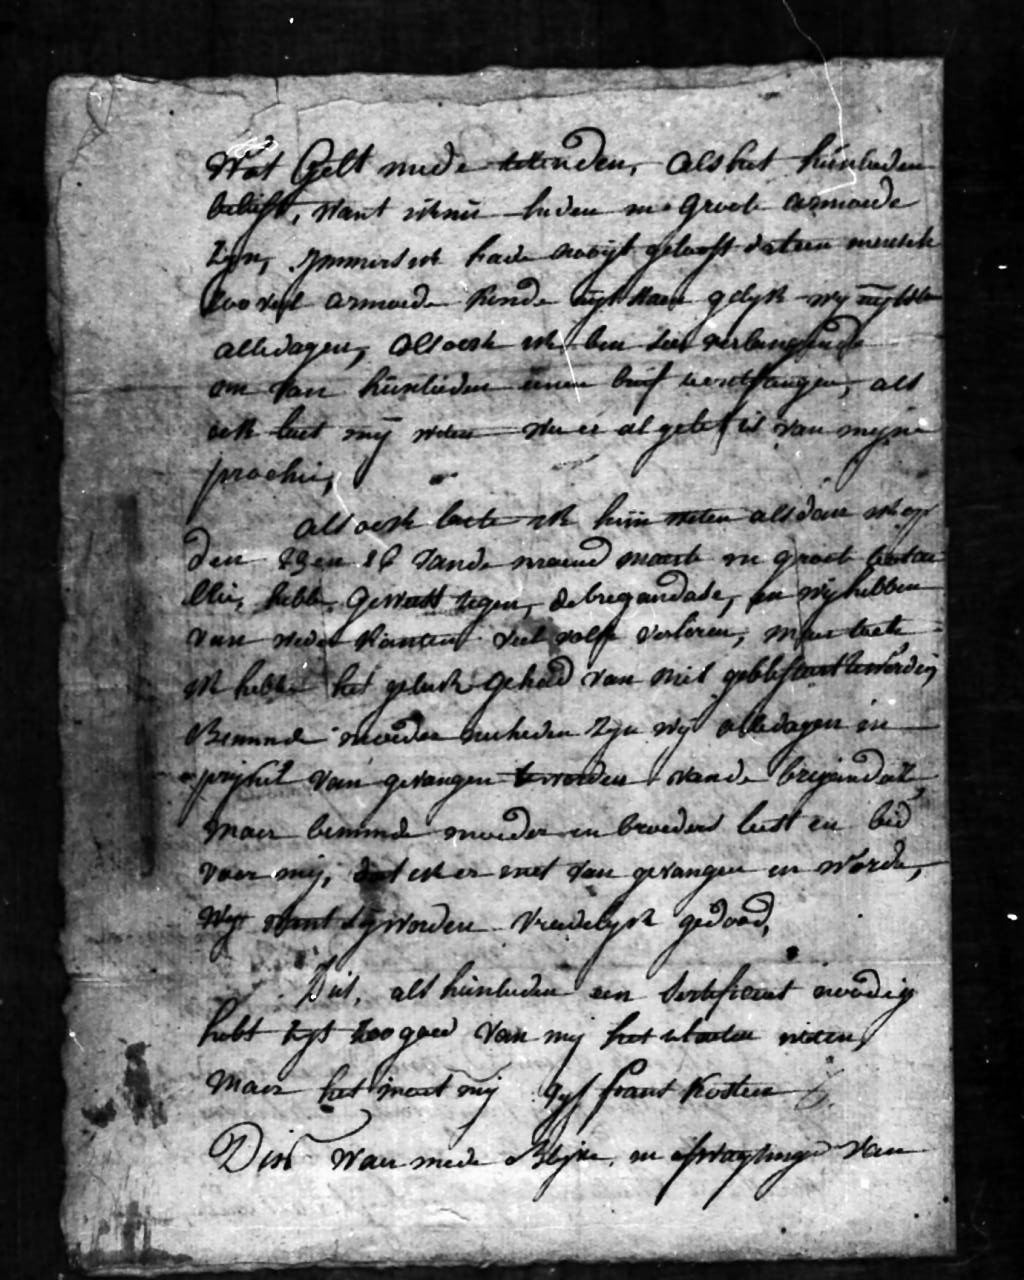 Wat Gelt mede te senden, als het hunlieden
belieft, want ik nu heden in groote armoede
Zyn, Jmmers ik hade nooijt gelooft dat een mensch
Zoo veel armoede konde uijtstaen gelyk wy uytstaen
alledagen, als oock ik ben seer verlangende
om van hunlieden eenen brief t'ontfangen, als
ook laet mij weten wie er al gelot is van myne
prochie,
als oock laete ik hun weten als dan ik op
den 29 en 16 vande maend maerte in groot battai
llie, hebbe geweest tegen de bregandade, en wy hebben
van weder kanten veel volk verloren, maer
ik hebbe het geluck gehad van niet geblesseert te worden
Beminde moeder nu heden zyn wy alledagen in
prijkel van gevangen te worden vande bregandat
maer beminde moeder en broeders leest en bid
voor mij, dat ik er niet van gevangen en worde,
want sy worden vreedelyk gedood,
Dus, als hunlieden een sertificaet noodig
hebt zyt zoo goed van my het te laeten weten,
maer het moet mij vyf frans kosten
Dus waer mede Blyve in afwagtinge van